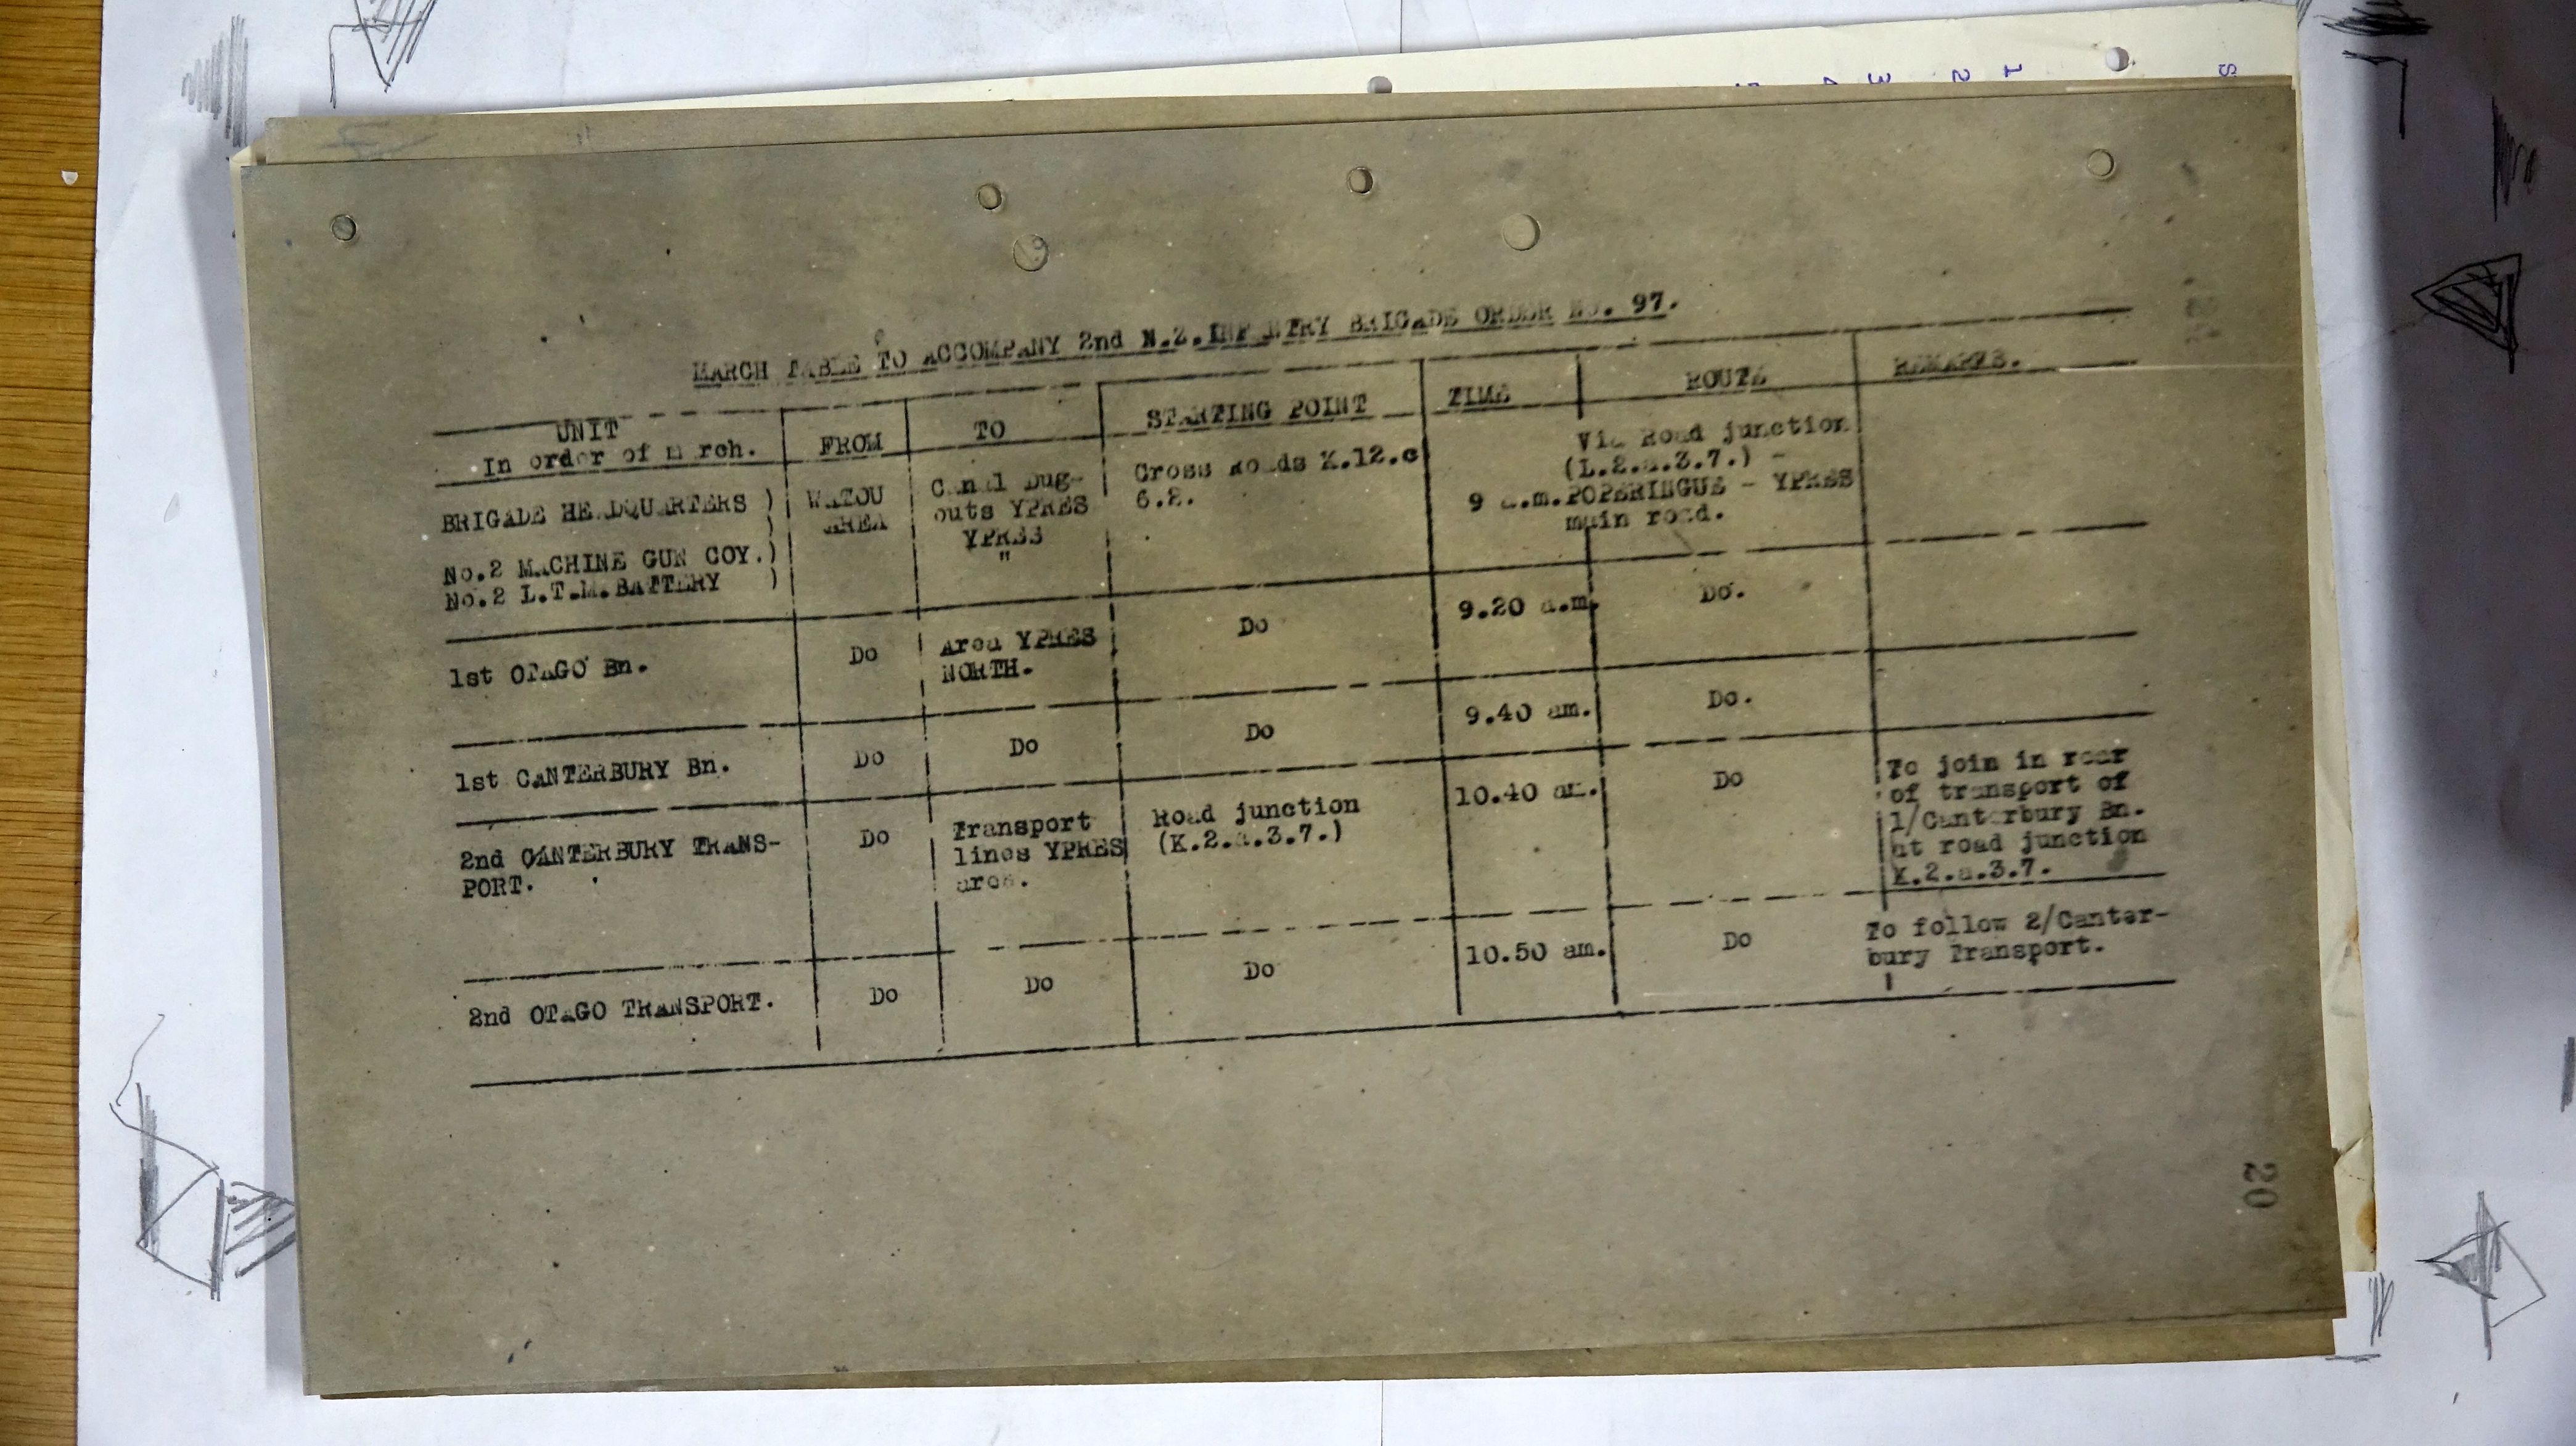 S
1
2
3
MARCH TABLE TO ACCOMPANY 2nd N.Z.INFANTRY BRIGADE ORDER No. 97.
UNIT
In order of march.
FROM
TO
STARTING POINT
TIME
ROUTE
REMARKS.
BRIGADE HEADQUARTERS )
)
No.2 MACHINE GUN COY.)
No.2 L.T.M.BATTERY )
WATOU
AREA
Canal Dug-
outs YPRES
YPRES
"
Cross Roads K.12.c
6.2.
9 a.m.
Via Road junction
(L.2.a.3.7.) -
POPERINGUE - YPRES
main road.
1st OTAGO Bn.
Do
Area YPRES
NORTH.
Do
9.20 a.m.
Do.
1st CANTERBURY Bn.
Do
Do
Do
9.40 am.
Do.
2nd CANTERBURY TRANS-
PORT.
Do
Transport
lines YPRES
area.
Road junction
(K.2.a.3.7.)
10.40 am.
Do
To join in rear
of transport of
1/Canterbury Bn.
at road junction
K.2.a.3.7.
2nd OTAGO TRANSPORT.
Do
Do
Do
10.50 am.
Do
To follow 2/Canter-
bury Transport.
20